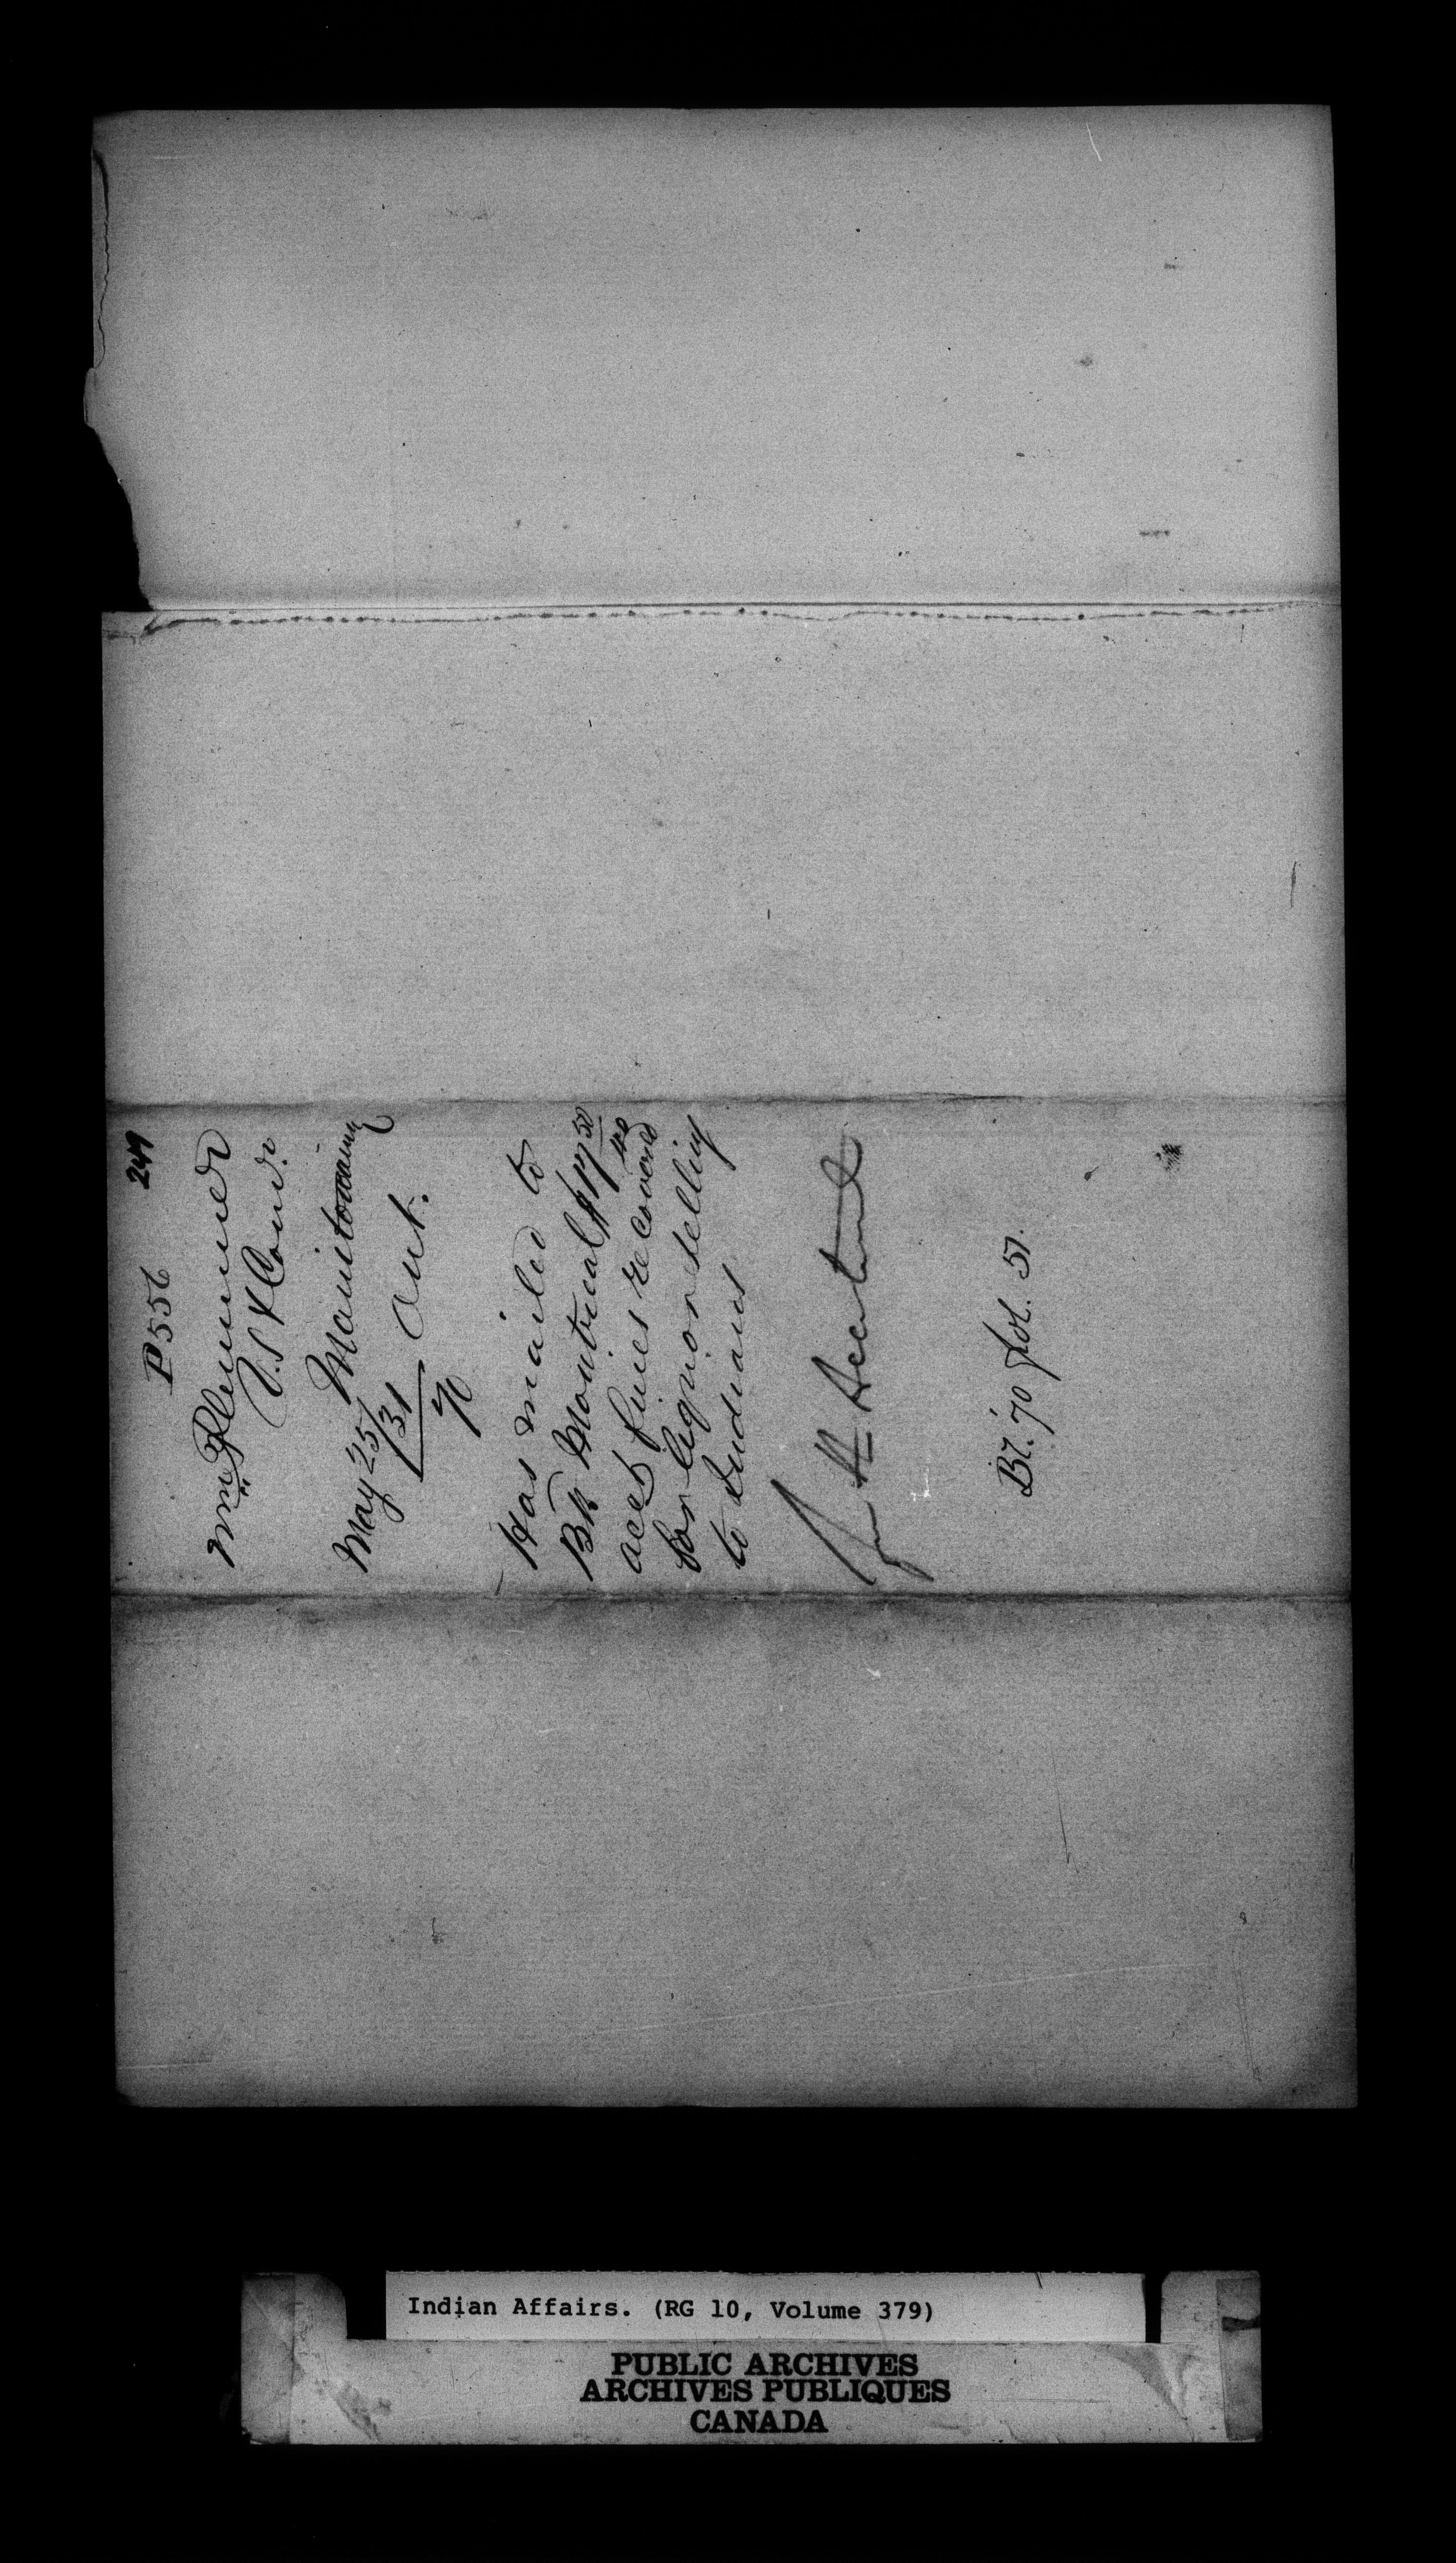 249
P556
Wm Plummer
V.S & Comr.
Manitowaning
May 25/31 Ont.
70
Has mailed to
Bk Montreal $17 50
acct fines recovered
for liquor selling
to Indians
Bk. '70 fol. 51.
Indian Affairs. (RG 10, Volume 379)
PUBLIC ARCHIVES
ARCHIVES PUBLIQUES
CANADA